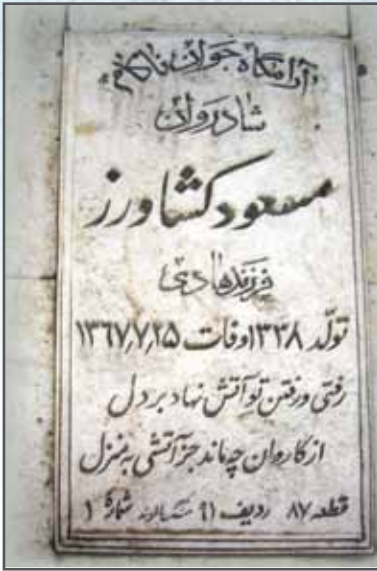 آرامگاه جوان ناکام
شادروان
مسعود کشاورز
فرزند هادی
تولّد ۱۳۳۸ وفات ۱۳۶۷٫۷٫۲۵
رفتی و رفتن تو آتش نهاد بر دل
از کاروان چه ماند جز آتشی به منزل
قطعه ۸۷ ردیف ۶۱ شماره ۱